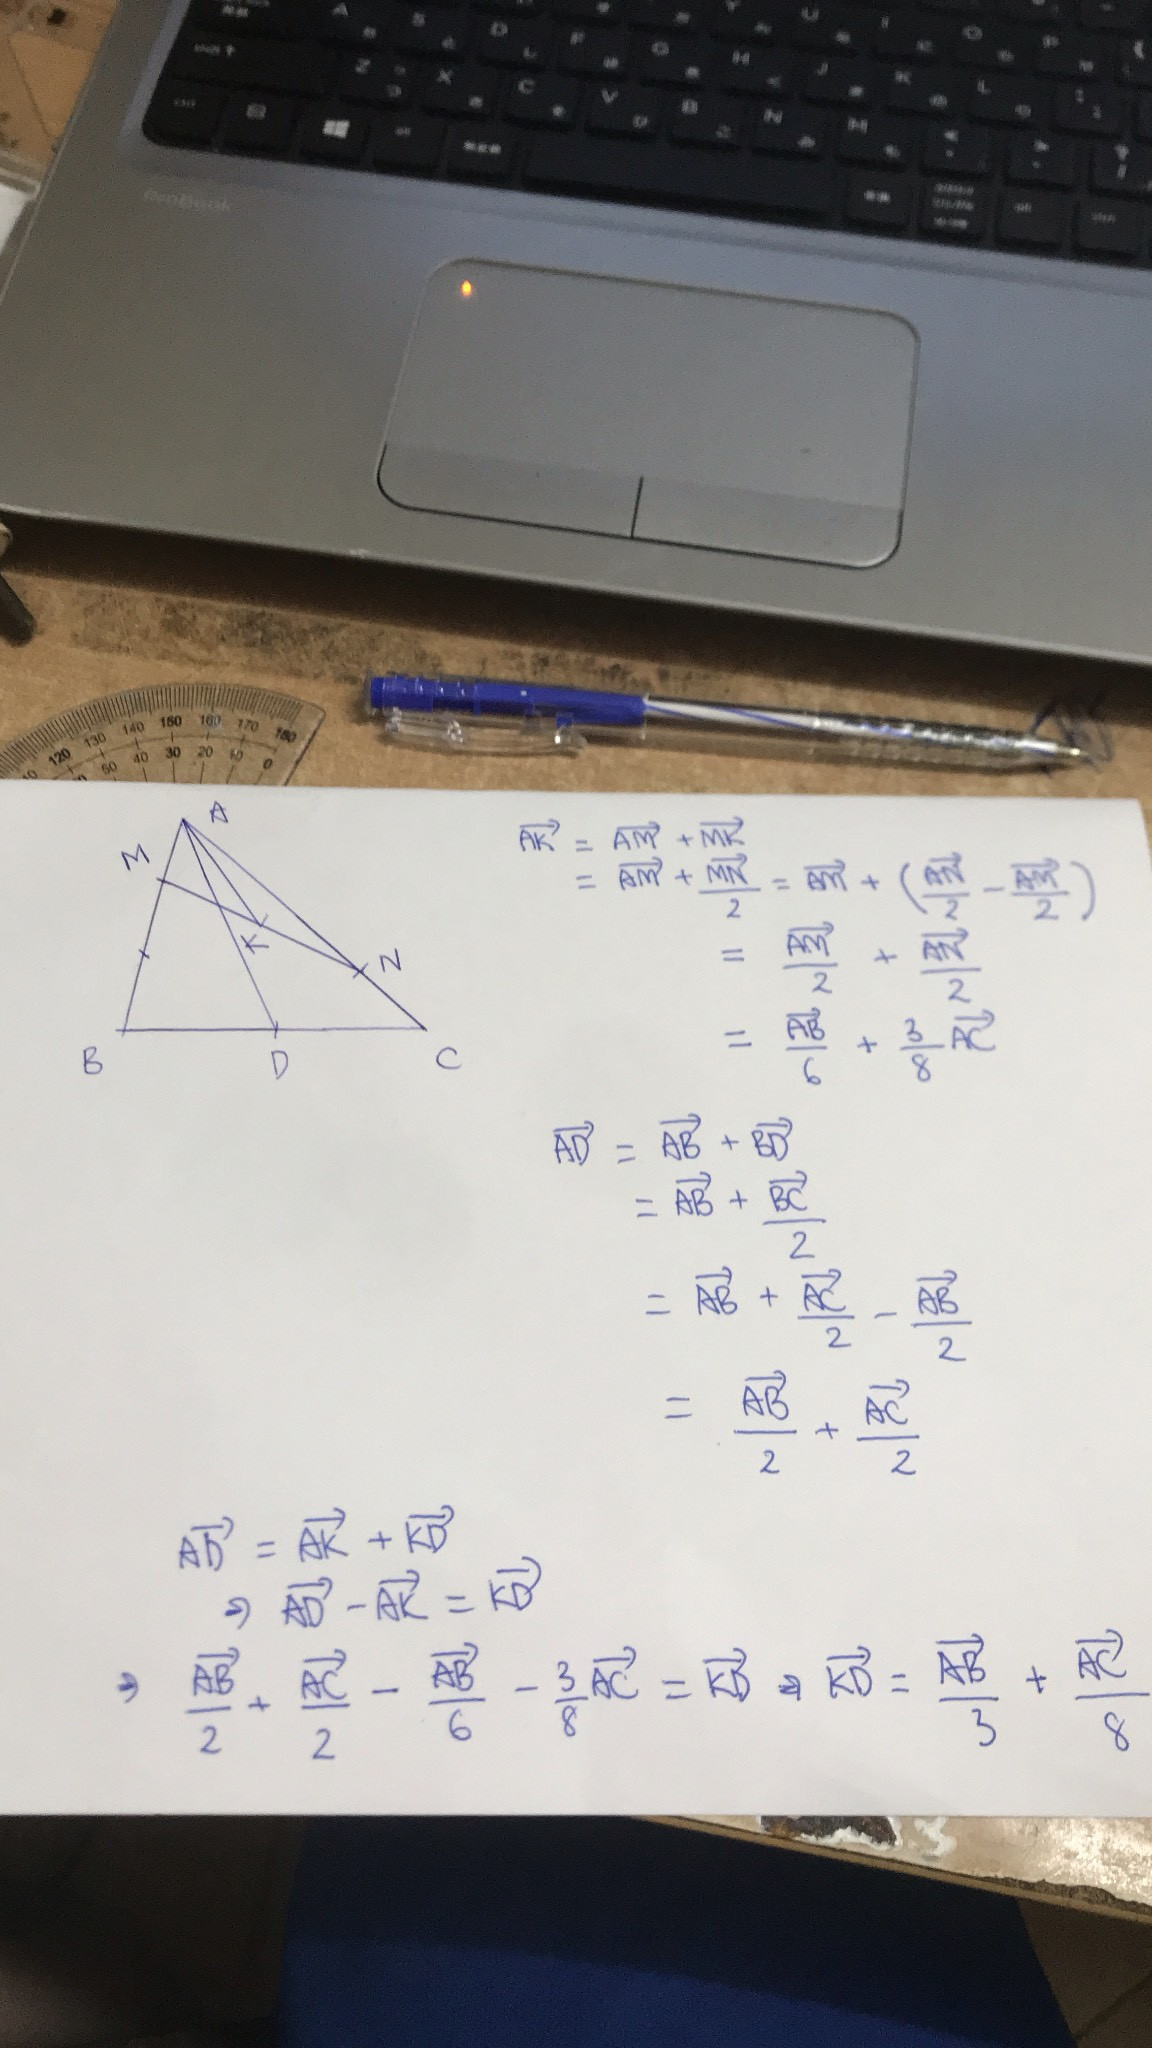 A S D F G H J K L
Z X C V B N M
ProBook
120 130 140 150 160 170 180
50 40 30 20 10 0
A
M
K
N
B D C
\overrightarrow{AK} = \overrightarrow{AM} + \overrightarrow{MK}
= \overrightarrow{AM} + \frac{\overrightarrow{MN}}{2} = \overrightarrow{AM} + \left( \frac{\overrightarrow{AN}}{2} - \frac{\overrightarrow{AM}}{2} \right)
= \frac{\overrightarrow{AM}}{2} + \frac{\overrightarrow{AN}}{2}
= \frac{\overrightarrow{AB}}{6} + \frac{3}{8} \overrightarrow{AC}
\overrightarrow{AD} = \overrightarrow{AB} + \overrightarrow{BD}
= \overrightarrow{AB} + \frac{\overrightarrow{BC}}{2}
= \overrightarrow{AB} + \frac{\overrightarrow{AC}}{2} - \frac{\overrightarrow{AB}}{2}
= \frac{\overrightarrow{AB}}{2} + \frac{\overrightarrow{AC}}{2}
\overrightarrow{AD} = \overrightarrow{AK} + \overrightarrow{KD}
⇒ \overrightarrow{AD} - \overrightarrow{AK} = \overrightarrow{KD}
⇒ \frac{\overrightarrow{AB}}{2} + \frac{\overrightarrow{AC}}{2} - \frac{\overrightarrow{AB}}{6} - \frac{3}{8} \overrightarrow{AC} = \overrightarrow{KD} ⇒ \overrightarrow{KD} = \frac{\overrightarrow{AB}}{3} + \frac{\overrightarrow{AC}}{8}